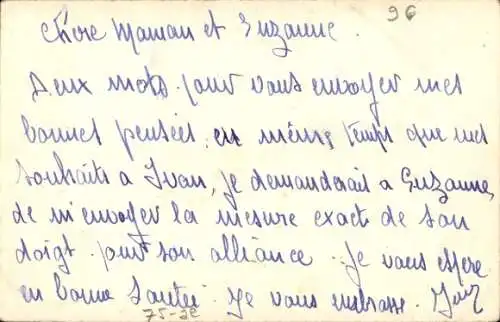 96
chère Maman et Suzanne.
Deux mots pour vous envoyer mes
bonnes pensées. en même temps que mes
souhaits a Ivan, je demanderait a Suzanne,
de m'envoyer la mesure exact de son
doigt. pour son alliance. Je vous espere
en bonne Santée. Je vous embrasse.
75-3E